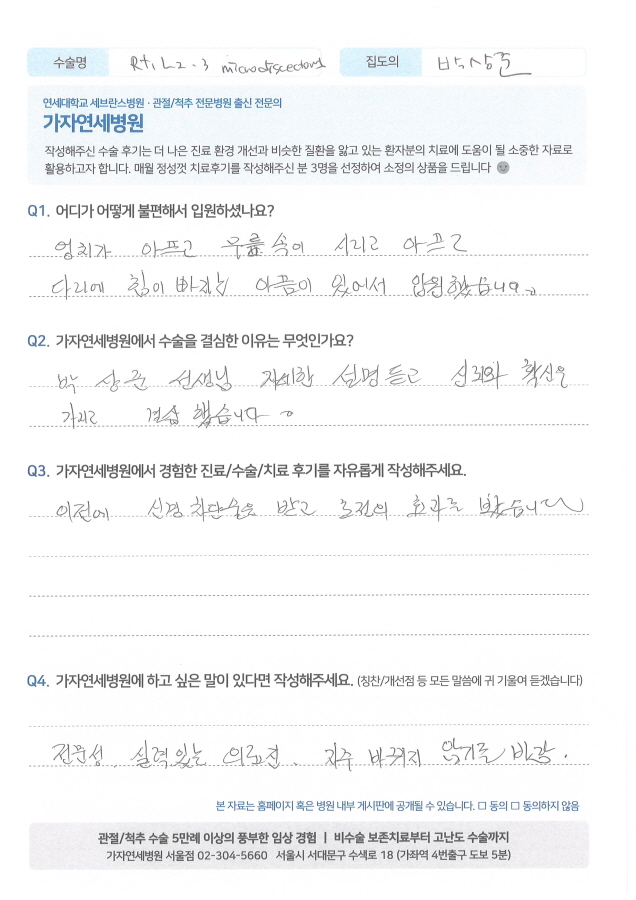 수술명 Rt. L2-3 microdiscectomy 집도의 박상준
연세대학교 세브란스병원 · 관절/척추 전문병원 출신 전문의
가자연세병원
작성해주신 수술 후기는 더 나은 진료 환경 개선과 비슷한 질환을 앓고 있는 환자분의 치료에 도움이 될 소중한 자료로
활용하고자 합니다. 매월 정성껏 치료후기를 작성해주신 분 3명을 선정하여 소정의 상품을 드립니다
Q1. 어디가 어떻게 불편해서 입원하셨나요?
엉치가 아프고 무릎속이 시리고 아프고
다리에 힘이 빠지는 아픔이 있어서 입원했습니다.
Q2. 가자연세병원에서 수술을 결심한 이유는 무엇인가요?
박상준 선생님 자세한 설명듣고 신뢰와 확신을
가지고 결심했습니다.
Q3. 가자연세병원에서 경험한 진료/수술/치료 후기를 자유롭게 작성해주세요.
이전에 신경차단술을 받고 호전의 효과를 봤습니다
Q4. 가자연세병원에 하고 싶은 말이 있다면 작성해주세요. (칭찬/개선점 등 모든 말씀에 귀 기울여 듣겠습니다)
전문성, 실력있는 의료진, 자주 바뀌지 않기를 바람.
본 자료는 홈페이지 혹은 병원 내부 게시판에 공개될 수 있습니다. □ 동의 □ 동의하지 않음
관절/척추 수술 5만례 이상의 풍부한 임상 경험 | 비수술 보존치료부터 고난도 수술까지
가자연세병원 서울점 02-304-5660 서울시 서대문구 수색로 18 (가좌역 4번출구 도보 5분)